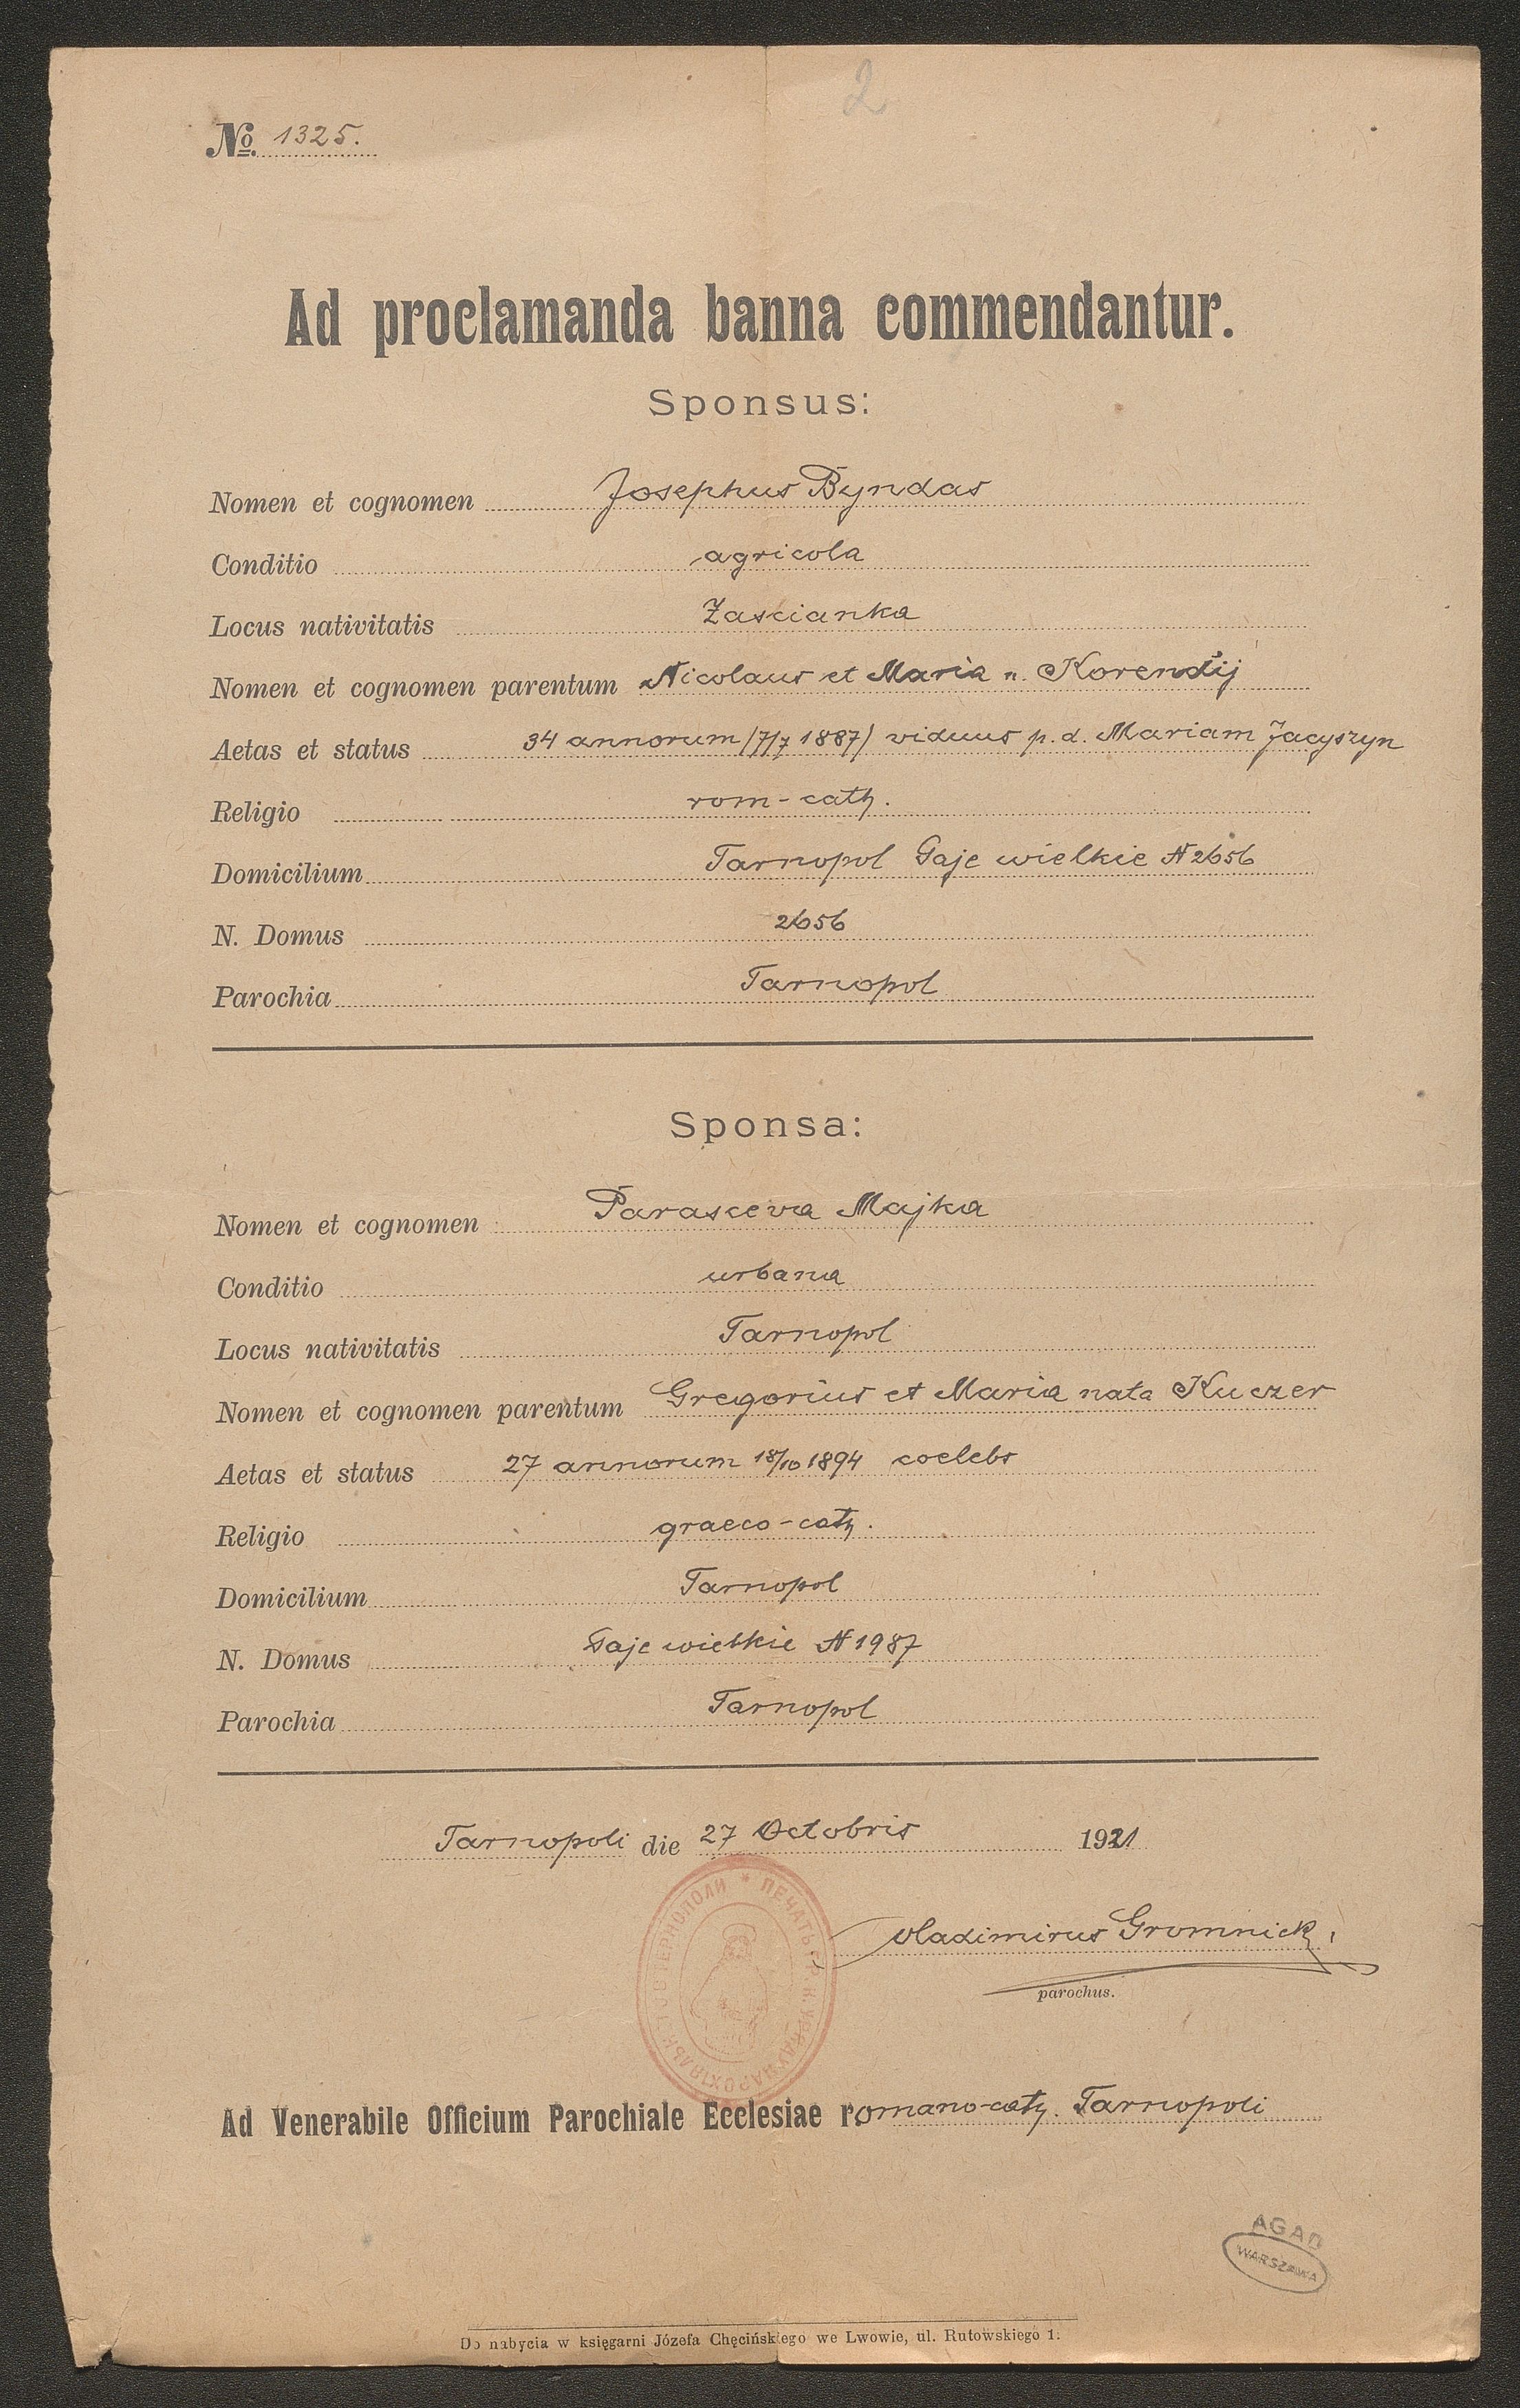 2
No 1325.
Ad proclamanda banna commendantur.
Sponsus:
Nomen et cognomen Josephus Byndas
Conditio agricola
Locus nativitatis Zascianka
Nomen et cognomen parentum Nicolaus et Maria n. Korendij
Aetas et status 34 annorum /7/7 1887/ viduus p. d. Mariam Jacyszyn
Religio rom-cath.
Domicilium Tarnopol Gaje wielkie N 2656
N. Domus 2656
Parochia Tarnopol
Sponsa:
Nomen et cognomen Parasceva Majka
Conditio urbana
Locus nativitatis Tarnopol
Nomen et cognomen parentum Gregorius et Maria nata Kuczer
Aetas et status 27 annorum 18/10 1894 coelebs
Religio graeco-cath.
Domicilium Tarnopol
N. Domus Gaje wielkie N 1987
Parochia Tarnopol
Tarnopoli die 27 Octobris 1921
Vladimirus Gromnicki
parochus.
Ad Venerabile Officium Parochiale Ecclesiae romano-cath. Tarnopoli
AGAD
WARSZAWA
Do nabycia w księgarni Józefa Chęcińskiego we Lwowie, ul. Rutowskiego 1.